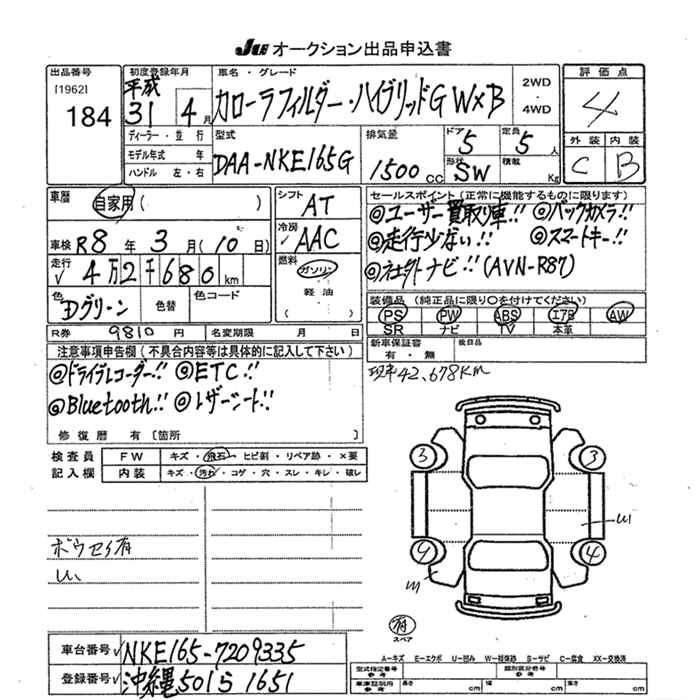 JU オークション出品申込書
出品番号 [1962] 184
初度登録年月 平成 31 4 月
車名・グレード カローラフィルダー・ハイブリッドG W×B 2WD・4WD
評価点 4
外装 C 内装 B
ディーラー・並行
モデル年式 年
ハンドル 左・右
型式 DAA-NKE165G
排気量 1500 CC
ドア 5 定員 5 人
形状 SW 積載 Kg
車歴 自家用 ( )
シフト AT
セールスポイント(正常に機能するものに限ります)
◎ユーザー買取り車!! ◎バックカメラ!!
◎走行少ない!! ◎スマートキー!!
◎社外ナビ!! (AVN-R87)
車検 R8 年 3 月 (10 日)
冷房 AAC
走行 √ 4万2千680 km
燃料 ガソリン・軽油・( )
色 Dグリーン 色替 色コード
装備品(純正品に限り○を付けてください)
PS PW ABS エアB AW
SR ナビ TV 本革
R券 9810 円 名変期限 月 日
新車保証書 有・無 後日品
注意事項申告欄(不具合内容等は具体的に記入して下さい)
◎ドライブレコーダー!! ◎ETC!!
◎Bluetooth!! ◎レザーシート!!
修復歴 有 [箇所 ]
現車42,678Km
検査員記入欄
FW キズ・飛石・ヒビ割・リペア跡・×要
内装 キズ・汚れ・コゲ・穴・スレ・キレ・破レ
ボウセイ有
3 3
9 4
有 スペア
車台番号 √ NKE165-7209335
登録番号 √ 沖縄 501 ら 1651
A−キズ E−エクボ U−凹み W−補修跡 S−サビ C−腐食 XX−交換済
型式指定番号 参考 類別区分番号 参考
車庫証明用 参考 長さ cm 幅 cm 高さ cm